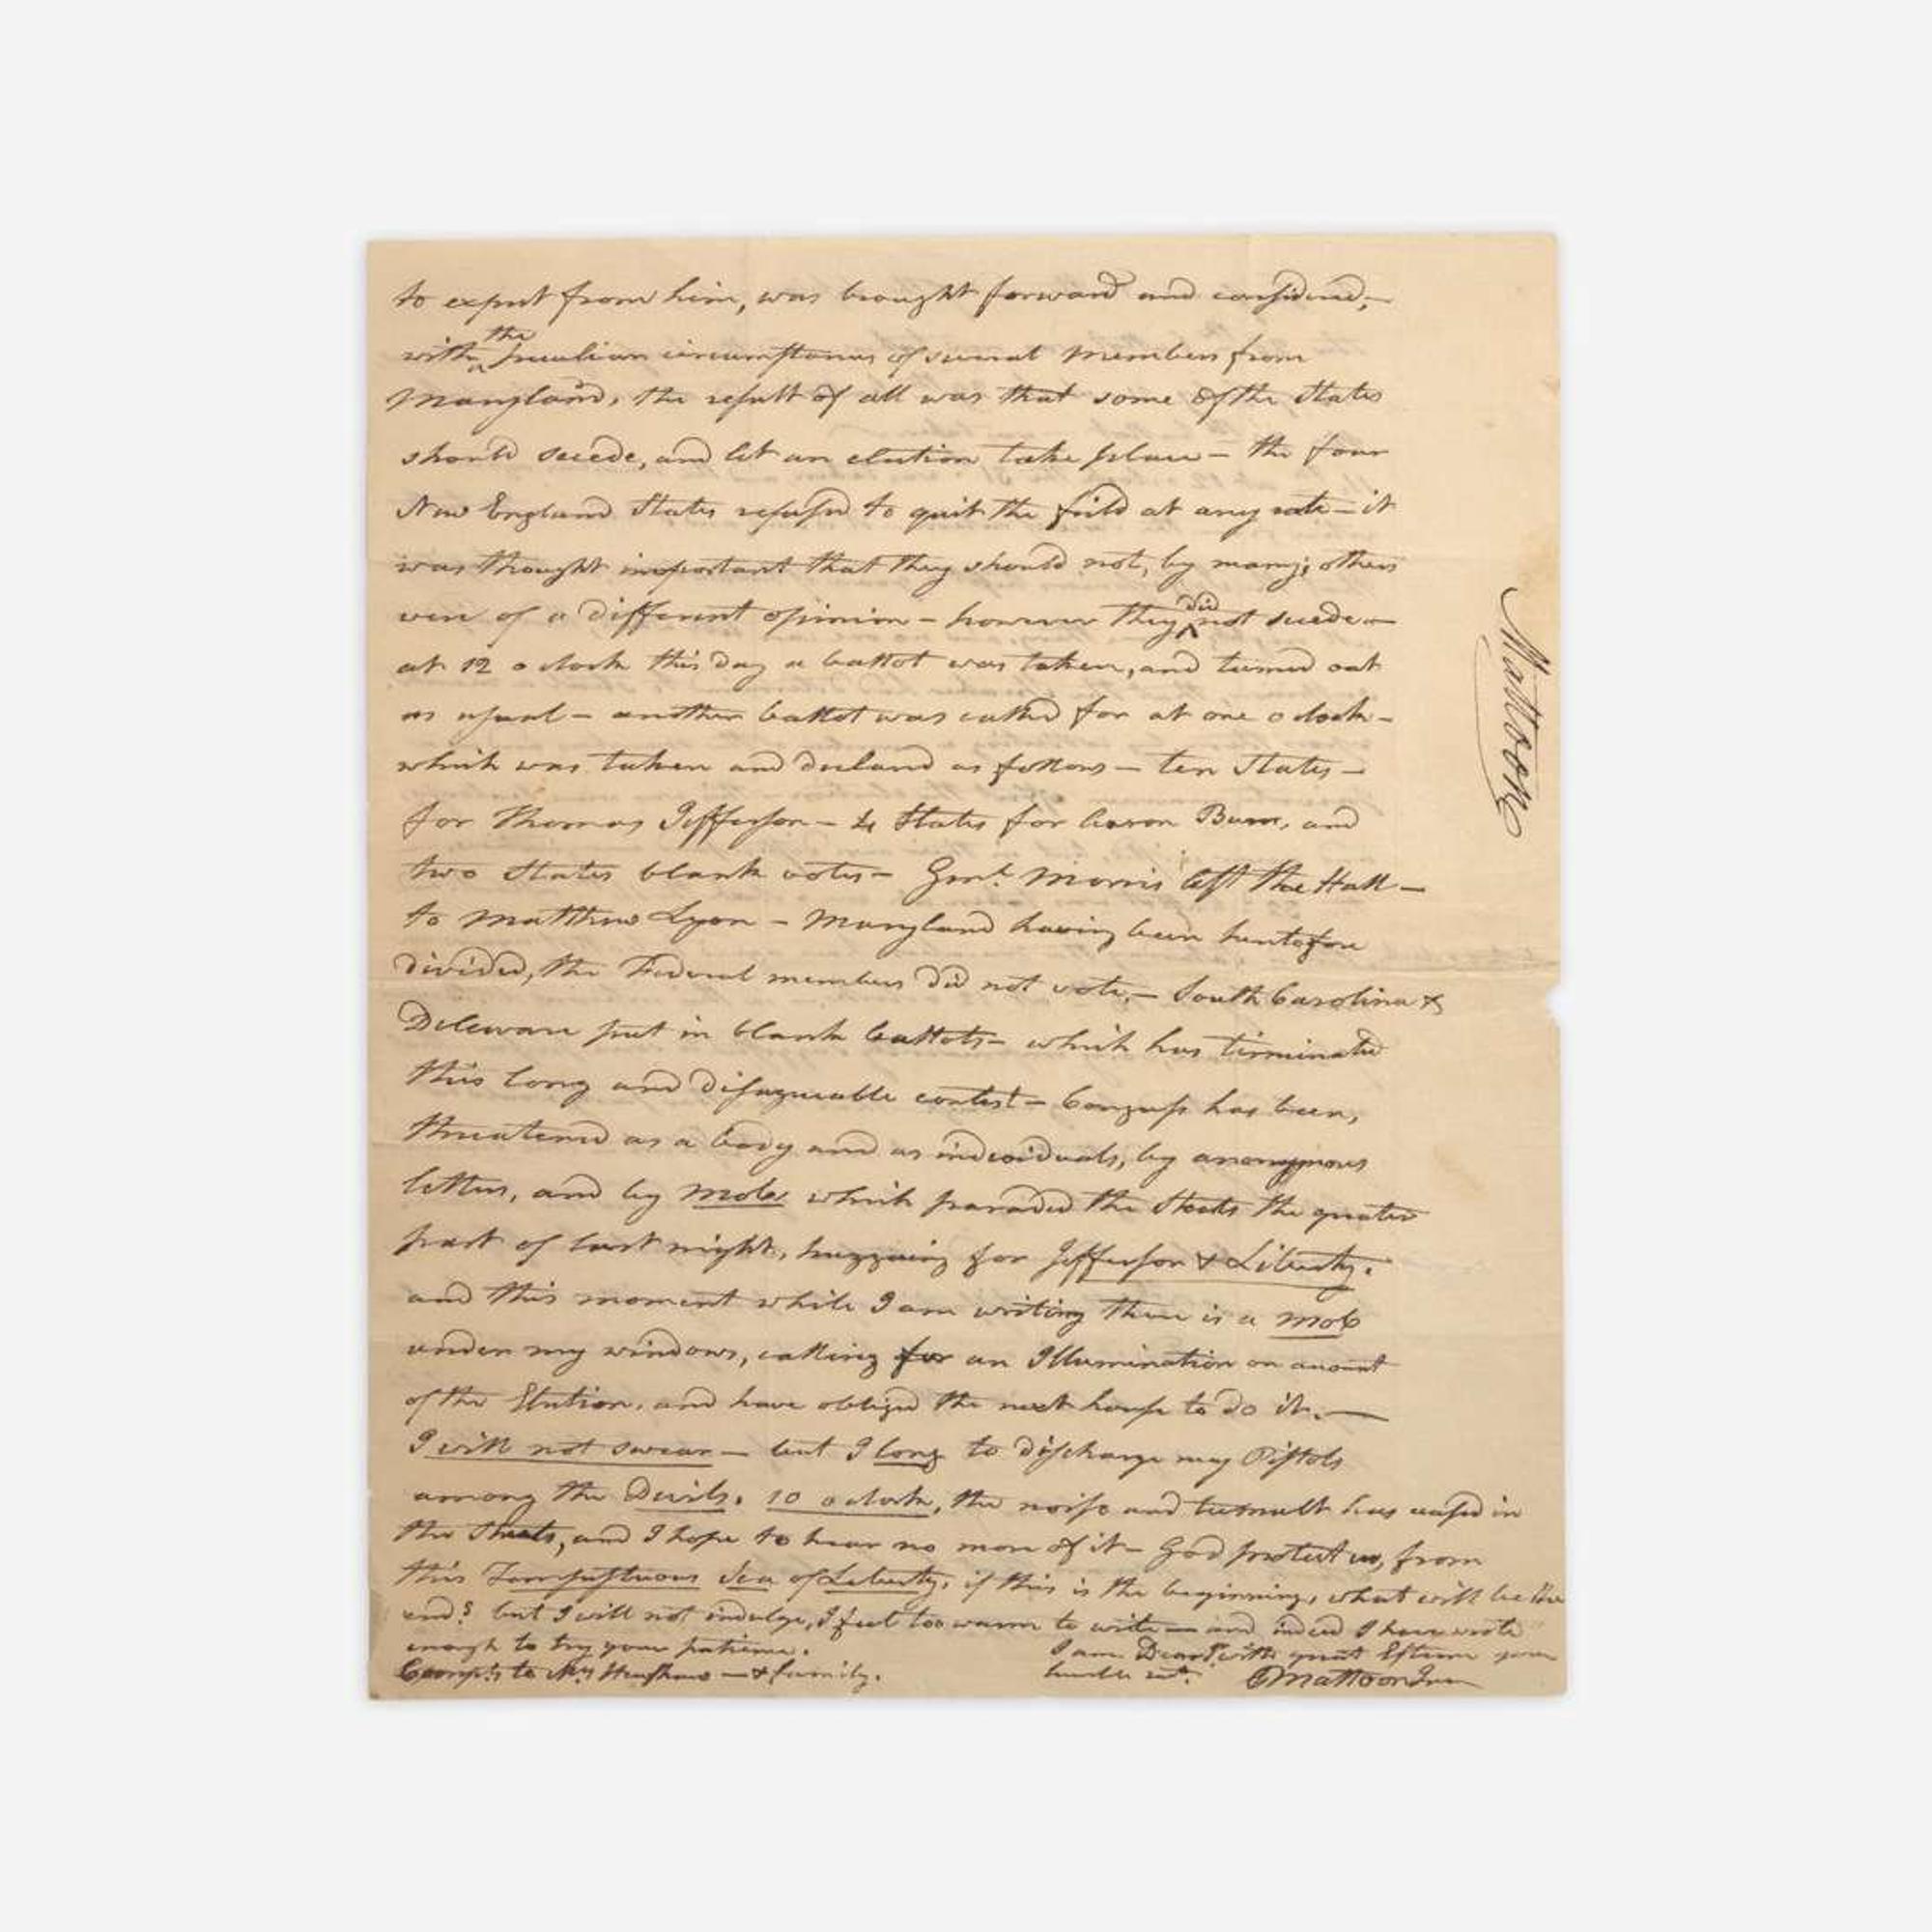 to expect from him, was brought forward and considered,—
the
with peculiar circumstances of several members from
Maryland, the result of all was that some of the States
should secede, and let an election take place — the four
New England States refused to quit the field at any rate — it
was thought important that they should not, by many; others
were of a different opinion — however they did not secede —
at 12 o clock this day a ballot was taken, and turned out
as usual — another ballot was called for at one o clock —
which was taken and declared as follows — ten States —
for Thomas Jefferson — 4 States for Aaron Burr, and
two States blank votes — Genl. Morris left the Hall —
to Matthew Lyon — Maryland having been heretofore
divided, the Federal members did not vote. — South Carolina &
Deleware put in blank ballots — which has terminated
this long and disagreeable contest — Congress has been,
threatened as a body and as individuals, by anonymous
letters, and by mobs which paraded the Streets the greater
part of last night, huzzaing for Jefferson & Liberty.
and this moment while I am writing there is a mob
under my windows, calling for an Illumination on account
of the Election, and have obliged the next house to do it. —
I will not swear — but I long to discharge my Pistols
among the Devils. 10 o clock, the noise and tumult has ceased in
the Streets, and I hope to hear no more of it — God protect us, from
this Tempestuous Sea of Liberty, if this is the beginning, what will be the
end? but I will not indulge, I feel too warm to write — and indeed I have wrote
enough to try your patience.
I am Dear Sr. with great Esteem your
Comp.ts to Mrs Henshaw — & family.
humble
EMattoon Jun
Mattoon